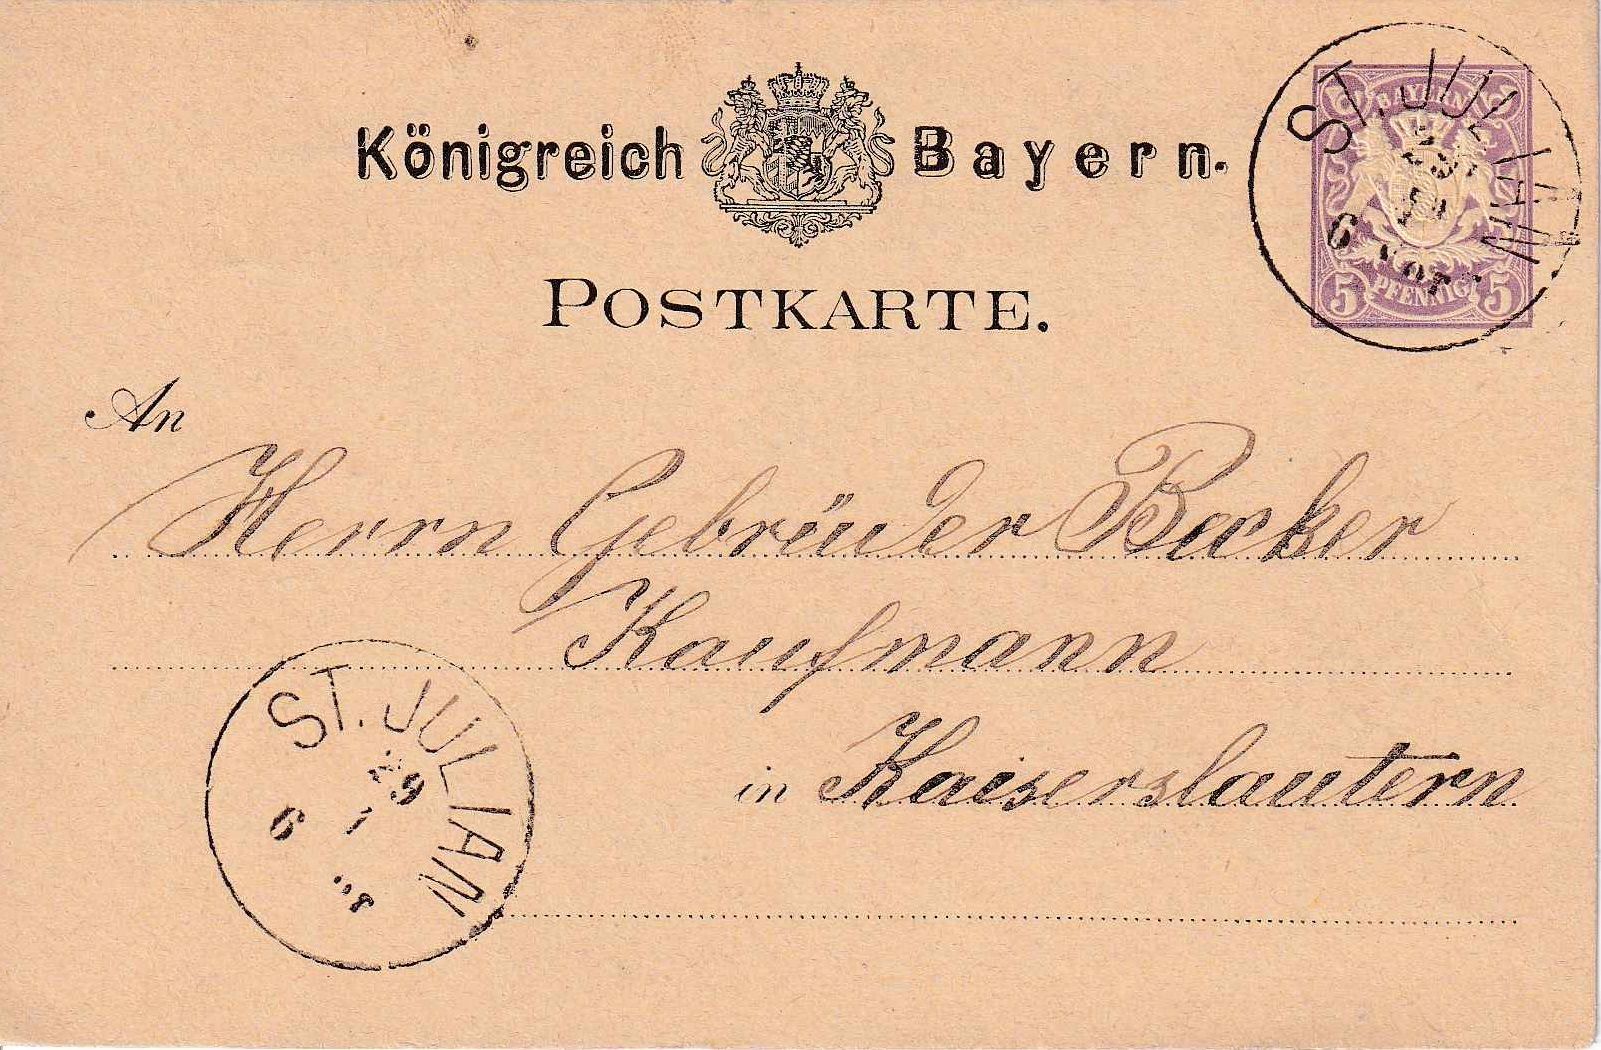 Königreich Bayern.
BAYERN
5 PFENNIG 5
ST. JULIAN
6
POSTKARTE.
An
Herrn Gebrüder Becker
Kaufmann
in Kaiserslautern
ST. JULIAN
29
1
6